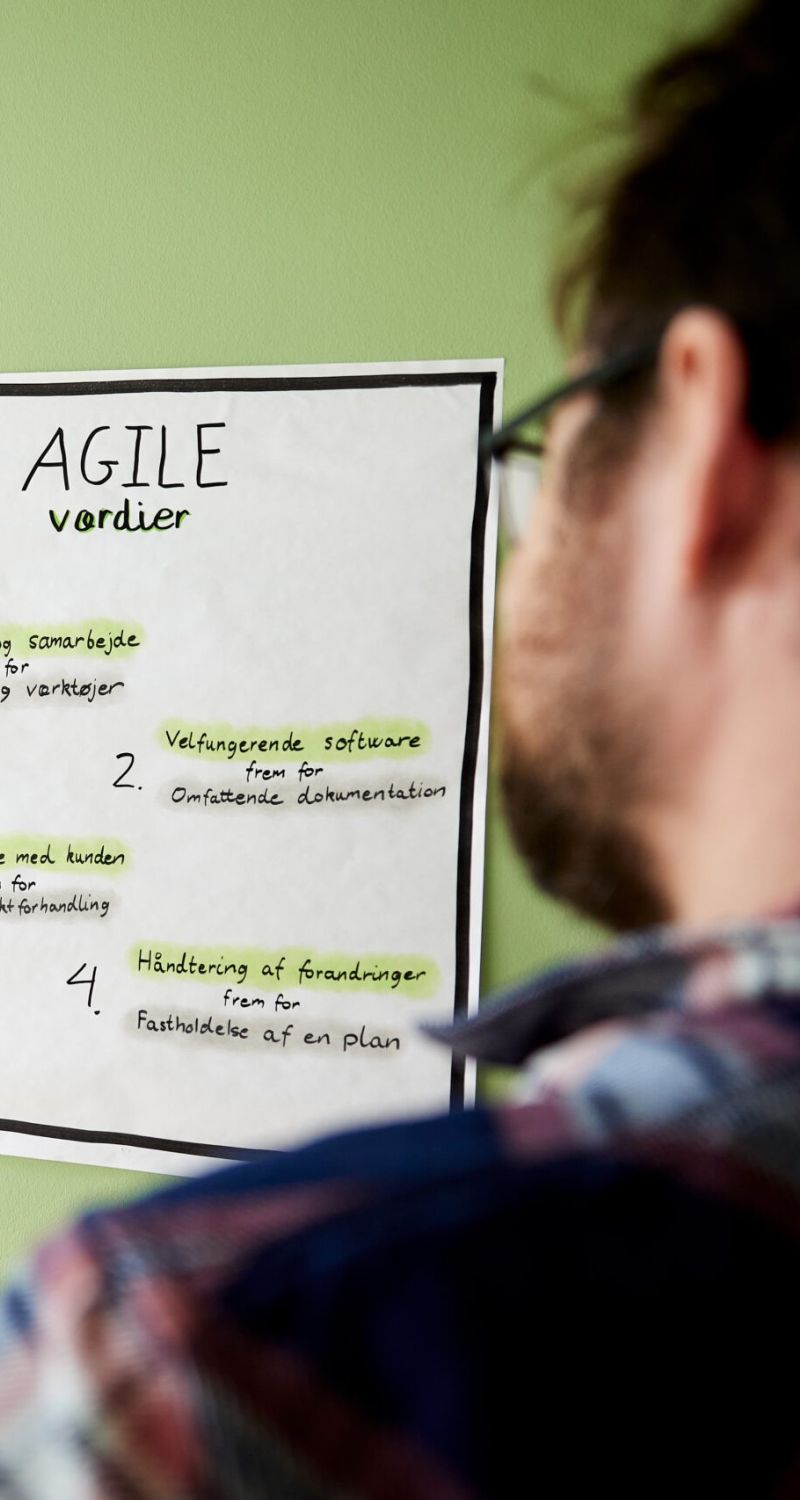 AGILE
værdier
og samarbejde
for
g værktøjer
2.
Velfungerende software
frem for
Omfattende dokumentation
e med kunden
for
ktforhandling
4.
Håndtering af forandringer
frem for
Fastholdelse af en plan